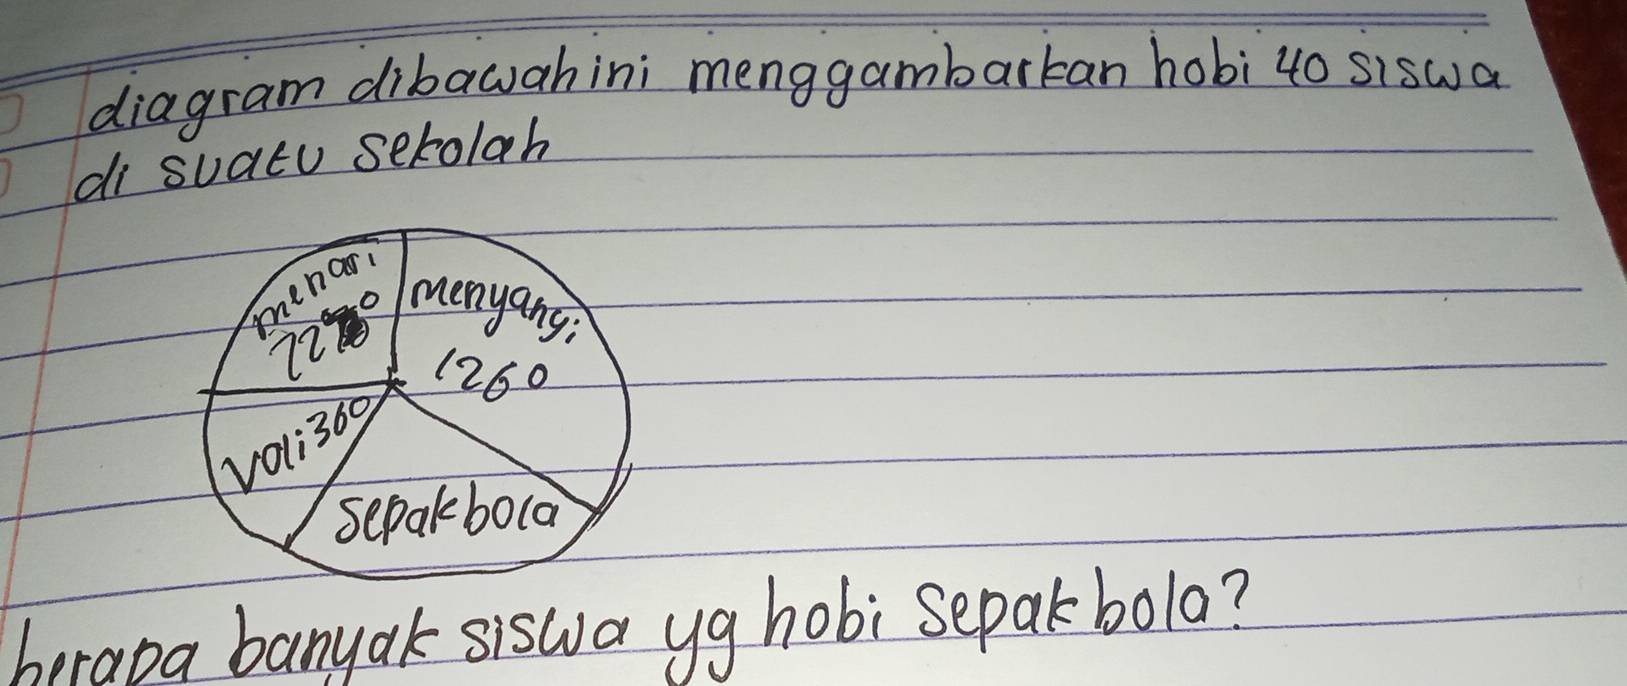 diagram dibawah ini menggambarkan hobi 40 siswa
di suatu sekolah
menari
menyanyi
1260
voli 360
sepak bola
berapa banyak siswa yg hobi sepak bola?